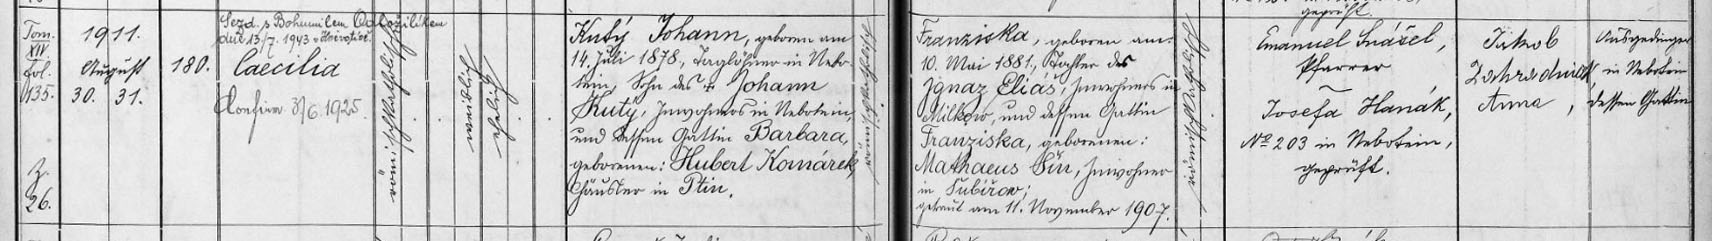 Tom.
XIV
fol.
135.
Z.
26.
1911.
August
30. 31.
180.
Sezd. s Bohumilem Odložilíkem
dne 13/7. 1943 v
Caecilia
Konfirm. 3/6. 1925.
römischkatholisch
weiblich
ehelich
Kutý Johann, geboren am
14. Juli 1878, Taglöhner in Nebo-
tein, Sohn des Johann
Kutý, Inwohners in Nebotein,
und dessen Gattin Barbara,
geborenen: Hubert Komárek,
Häusler in Ptin.
römischkatholisch
Franziska, geboren am
10. Mai 1881, Tochter des
Ignaz Eliáš, Inwohners in
Milkow, und dessen Gattin
Franziska, geborenen:
Mathaeus Šín, Inwohner
in
getraut am 11. November 1907.
römischkatholisch
geprüft.
Emanuel
Pfarrer
Josefa Hanák,
No 203 in Nebotein,
geprüft.
Jakob
Zahradníček
Anna,
Ausgedinger
in Nebotein
dessen Gattin